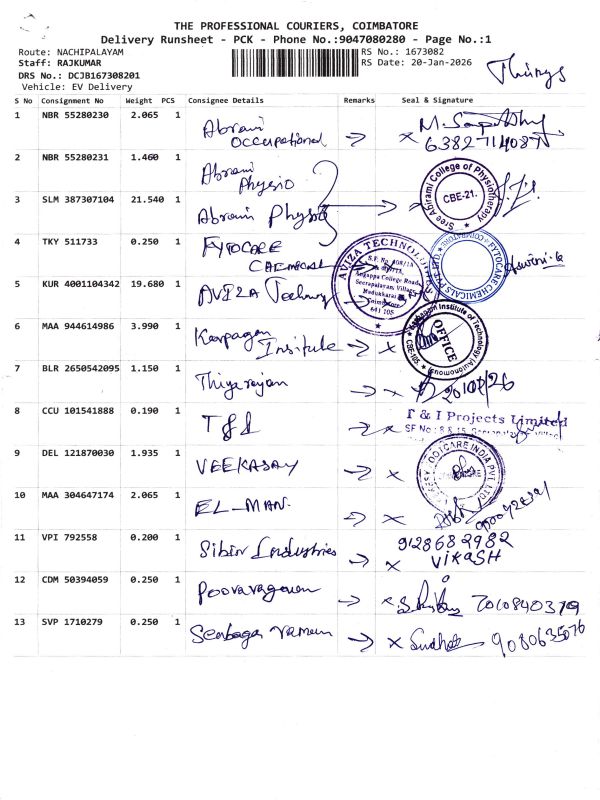 THE PROFESSIONAL COURIERS, COIMBATORE
Delivery Runsheet - PCK - Phone No.:9047080280 - Page No.:1
Route: NACHIPALAYAM RS No.: 1673082
Staff: RAJKUMAR RS Date: 20-Jan-2026
DRS No.: DCJB167308201
Vehicle: EV Delivery
S No Consignment No Weight PCS Consignee Details Remarks Seal & Signature
1 NBR 55280230 2.065 1 Abrami Occupational
2 NBR 55280231 1.460 1 Abrami Physio
3 SLM 387307104 21.540 1 Abrami Physio
Sree Abirami College of Physiotherapy
CBE-21.
4 TKY 511733 0.250 1 FYTOCARE CHEMICAL
FYTOCARE CHEMICALS PVT. LTD.
COIMBATORE
5 KUR 4001104342 19.680 1 AVIZA
AVIZA TECHNOLOGIES
Sugappa College Road,
Seerapalayam Village
Madukkarai
Coimbatore
641 105
6 MAA 944614986 3.990 1 Karpagam Insitute
Karpagam Institute of Technology (Autonomous)
OFFICE
CBE-105
7 BLR 2650542095 1.150 1 Thiyarajan
8 CCU 101541888 0.190 1 T&I
T & I Projects Limited
9 DEL 121870030 1.935 1 VEEKASAY
FOOTCARE INDIA PVT. LTD.
10 MAA 304647174 2.065 1 EL-MAN.
11 VPI 792558 0.200 1 Sibin Industries 9128682982
VIKASH
12 CDM 50394059 0.250 1
13 SVP 1710279 0.250 1 9080635076